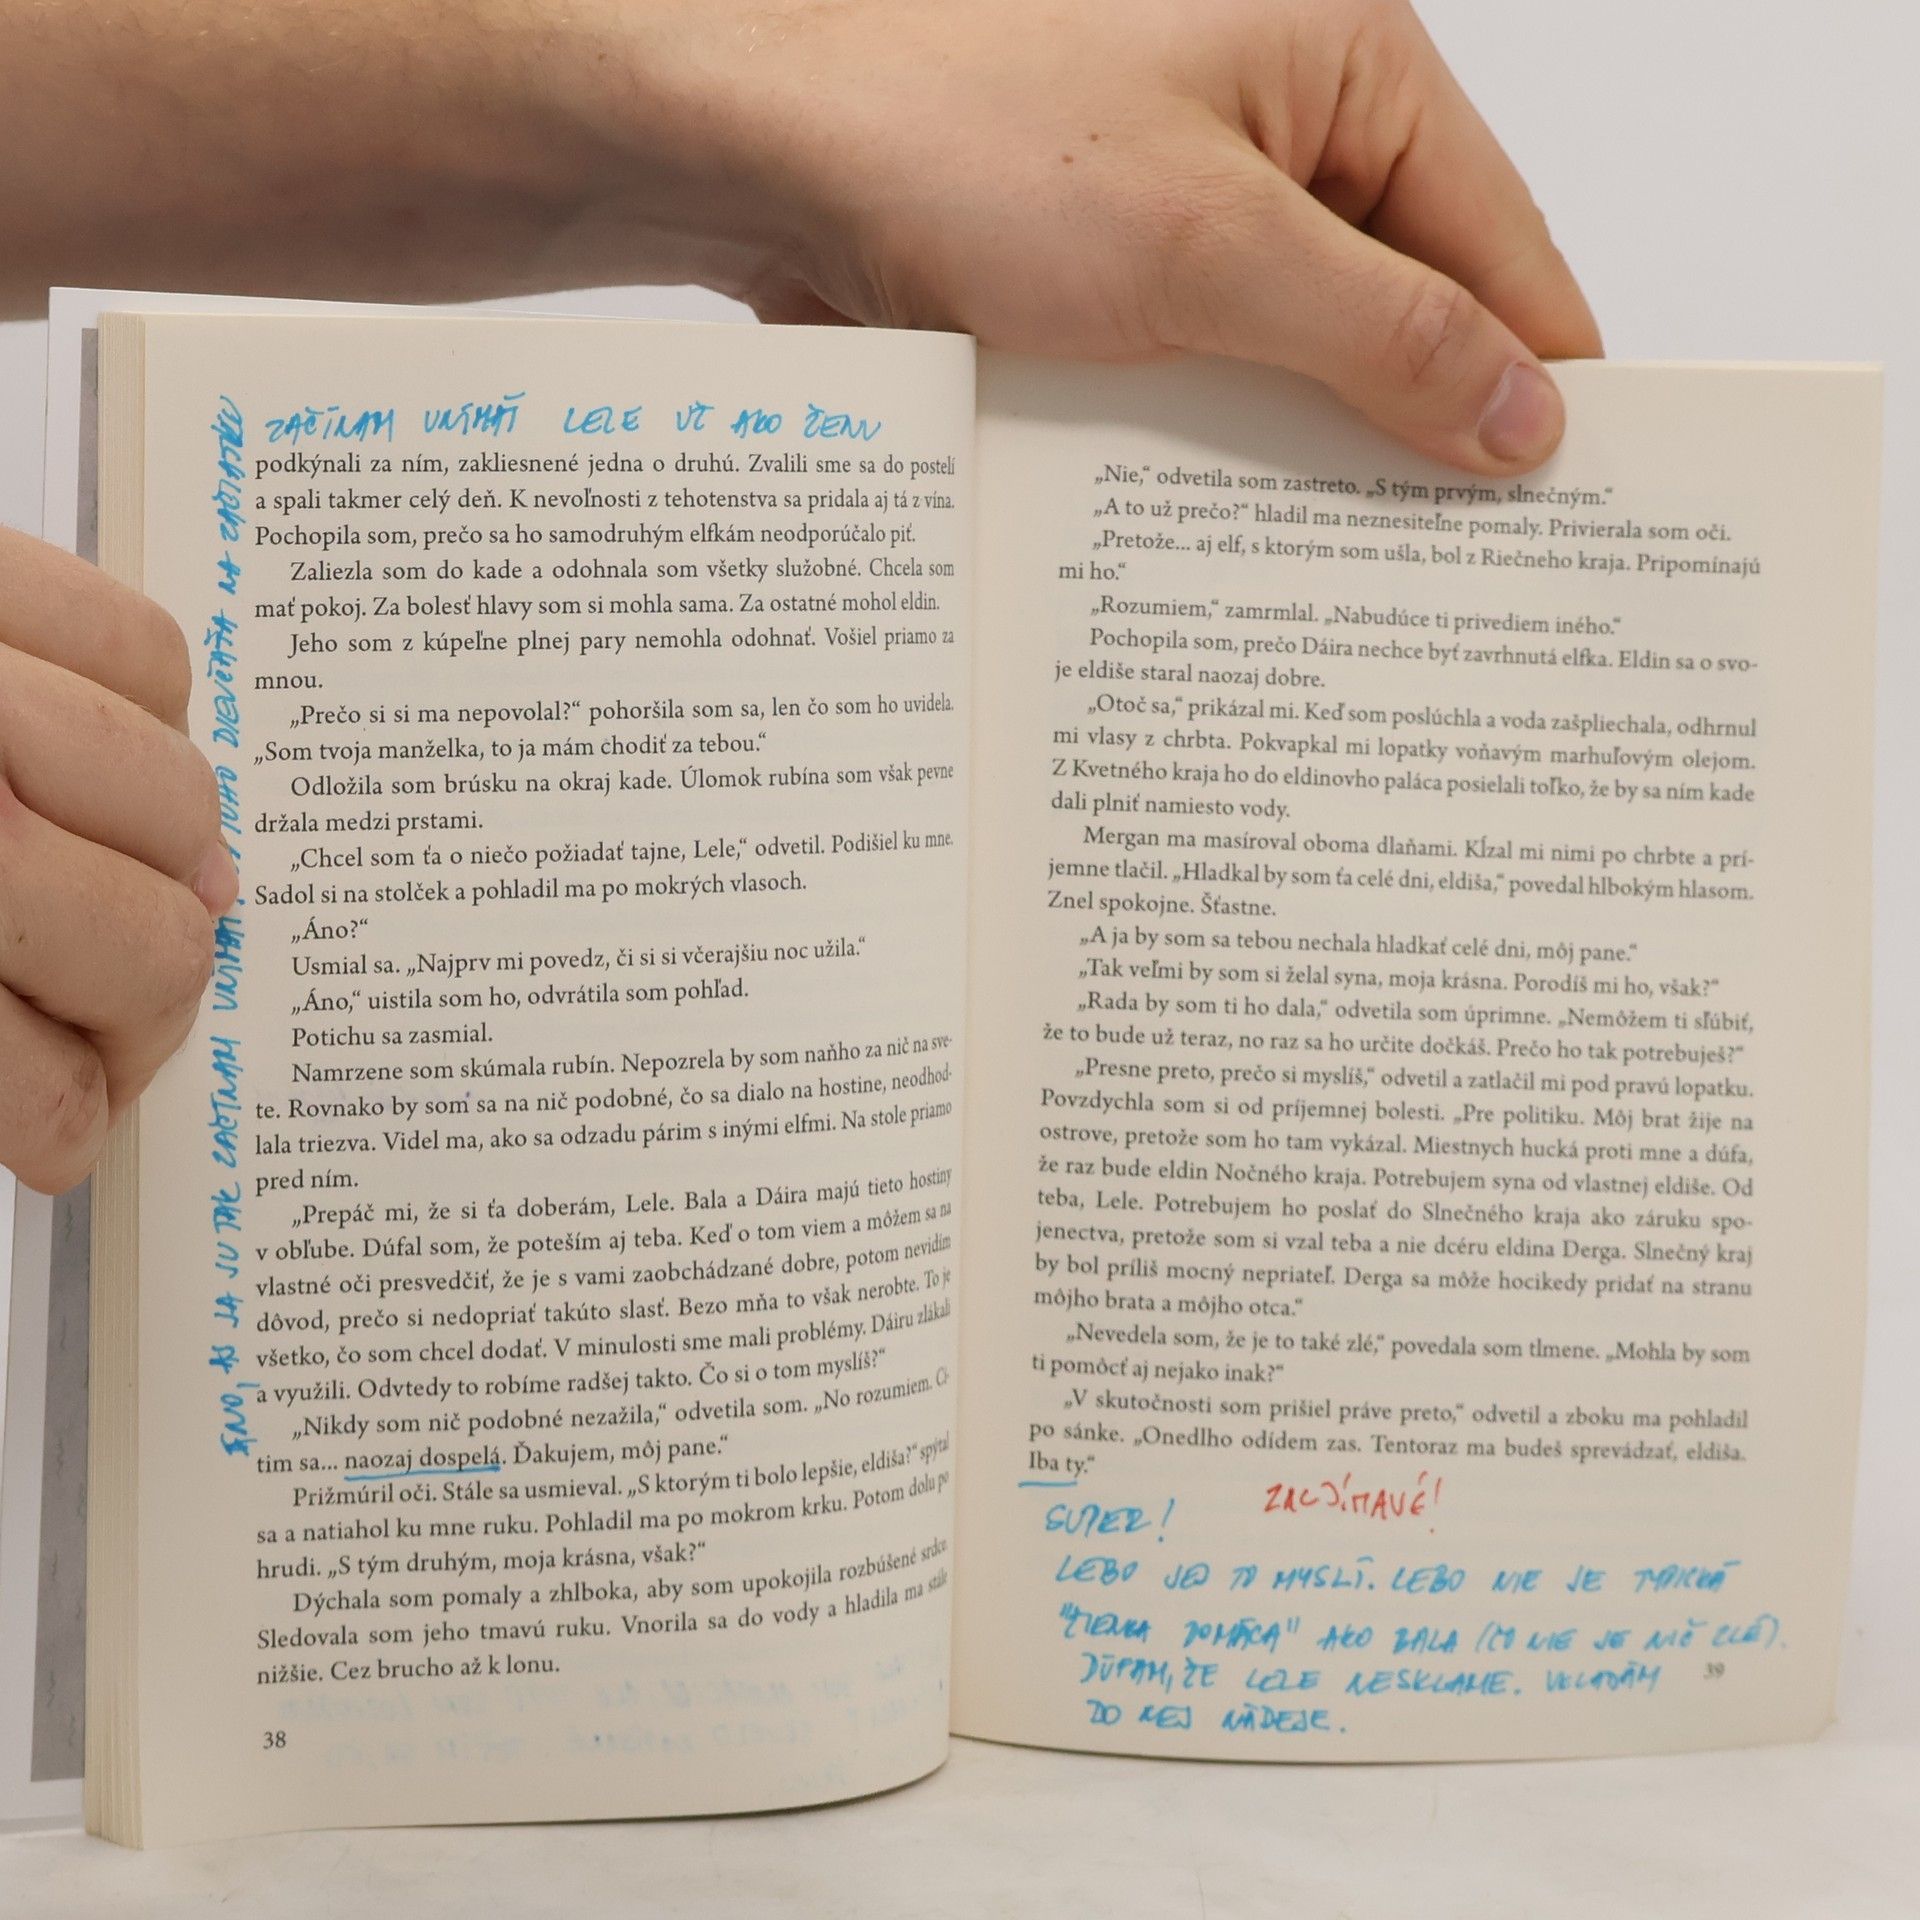 ZAČÍNAM VNÍMAŤ LELE UŽ AKO ŽENU
podkýnali za ním, zakliesnené jedna o druhú. Zvalili sme sa do postelí
a spali takmer celý deň. K nevoľnosti z tehotenstva sa pridala aj tá z vína.
Pochopila som, prečo sa ho samodruhým elfkám neodporúčalo piť.
Zaliezla som do kade a odohnala som všetky služobné. Chcela som
mať pokoj. Za bolesť hlavy som si mohla sama. Za ostatné mohol eldin.
Jeho som z kúpeľne plnej pary nemohla odohnať. Vošiel priamo za
mnou.
„Prečo si si ma nepovolal?“ pohoršila som sa, len čo som ho uvidela.
„Som tvoja manželka, to ja mám chodiť za tebou.“
Odložila som brúsku na okraj kade. Úlomok rubína som však pevne
držala medzi prstami.
„Chcel som ťa o niečo požiadať tajne, Lele,“ odvetil. Podišiel ku mne.
Sadol si na stolček a pohladil ma po mokrých vlasoch.
„Áno?“
Usmial sa. „Najprv mi povedz, či si si včerajšiu noc užila.“
„Áno,“ uistila som ho, odvrátila som pohľad.
Potichu sa zasmial.
Namrzene som skúmala rubín. Nepozrela by som naňho za nič na sve-
te. Rovnako by som sa na nič podobné, čo sa dialo na hostine, neodhod-
lala triezva. Videl ma, ako sa odzadu párim s inými elfmi. Na stole priamo
pred ním.
„Prepáč mi, že si ťa doberám, Lele. Bala a Dáira majú tieto hostiny
v obľube. Dúfal som, že poteším aj teba. Keď o tom viem a môžem sa na
vlastné oči presvedčiť, že je s vami zaobchádzané dobre, potom nevidím
dôvod, prečo si nedopriať takúto slasť. Bezo mňa to však nerobte. To je
všetko, čo som chcel dodať. V minulosti sme mali problémy. Dáiru zlákali
a využili. Odvtedy to robíme radšej takto. Čo si o tom myslíš?“
„Nikdy som nič podobné nezažila,“ odvetila som. „No rozumiem. Cí-
tim sa... naozaj dospelá. Ďakujem, môj pane.“
Prižmúril oči. Stále sa usmieval. „S ktorým ti bolo lepšie, eldiša?“ spýtal
sa a natiahol ku mne ruku. Pohladil ma po mokrom krku. Potom dolu po
hrudi. „S tým druhým, moja krásna, však?“
Dýchala som pomaly a zhlboka, aby som upokojila rozbúšené srdce.
Sledovala som jeho tmavú ruku. Vnorila sa do vody a hladila ma stále
nižšie. Cez brucho až k lonu.
38
„Nie,“ odvetila som zastreto. „S tým prvým, slnečným.“
„A to už prečo?“ hladil ma neznesiteľne pomaly. Privierala som oči.
„Pretože... aj elf, s ktorým som ušla, bol z Riečneho kraja. Pripomínajú
mi ho.“
„Rozumiem,“ zamrmlal. „Nabudúce ti privediem iného.“
Pochopila som, prečo Dáira nechce byť zavrhnutá elfka. Eldin sa o svo-
je eldiše staral naozaj dobre.
„Otoč sa,“ prikázal mi. Keď som poslúchla a voda zašpliechala, odhrnul
mi vlasy z chrbta. Pokvapkal mi lopatky voňavým marhuľovým olejom.
Z Kvetného kraja ho do eldinovho paláca posielali toľko, že by sa ním kade
dali plniť namiesto vody.
Mergan ma masíroval oboma dlaňami. Kĺzal mi nimi po chrbte a prí-
jemne tlačil. „Hladkal by som ťa celé dni, eldiša,“ povedal hlbokým hlasom.
Znel spokojne. Šťastne.
„A ja by som sa tebou nechala hladkať celé dni, môj pane.“
„Tak veľmi by som si želal syna, moja krásna. Porodíš mi ho, však?“
„Rada by som ti ho dala,“ odvetila som úprimne. „Nemôžem ti sľúbiť,
že to bude už teraz, no raz sa ho určite dočkáš. Prečo ho tak potrebuješ?“
„Presne preto, prečo si myslíš,“ odvetil a zatlačil mi pod pravú lopatku.
Povzdychla som si od príjemnej bolesti. „Pre politiku. Môj brat žije na
ostrove, pretože som ho tam vykázal. Miestnych hucká proti mne a dúfa,
že raz bude eldin Nočného kraja. Potrebujem syna od vlastnej eldiše. Od
teba, Lele. Potrebujem ho poslať do Slnečného kraja ako záruku spo-
jenectva, pretože som si vzal teba a nie dcéru eldina Derga. Slnečný kraj
by bol príliš mocný nepriateľ. Derga sa môže hocikedy pridať na stranu
môjho brata a môjho otca.“
„Nevedela som, že je to také zlé,“ povedala som tlmene. „Mohla by som
ti pomôcť aj nejako inak?“
„V skutočnosti som prišiel práve preto,“ odvetil a zboku ma pohladil
po sánke. „Onedlho odídem zas. Tentoraz ma budeš sprevádzať, eldiša.
Iba ty.“
ZAUJÍMAVÉ!
SUPER!
LEBO JEJ TO MYSLÍ. LEBO NIE JE TYPICKÁ
"ŽIENKA DOMÁCA" AKO BALA (ČO NIE JE NIČ ZLÉ).
DÚFAM, ŽE LELE NESKLAME. VKLADÁM
DO NEJ NÁDEJE.
39